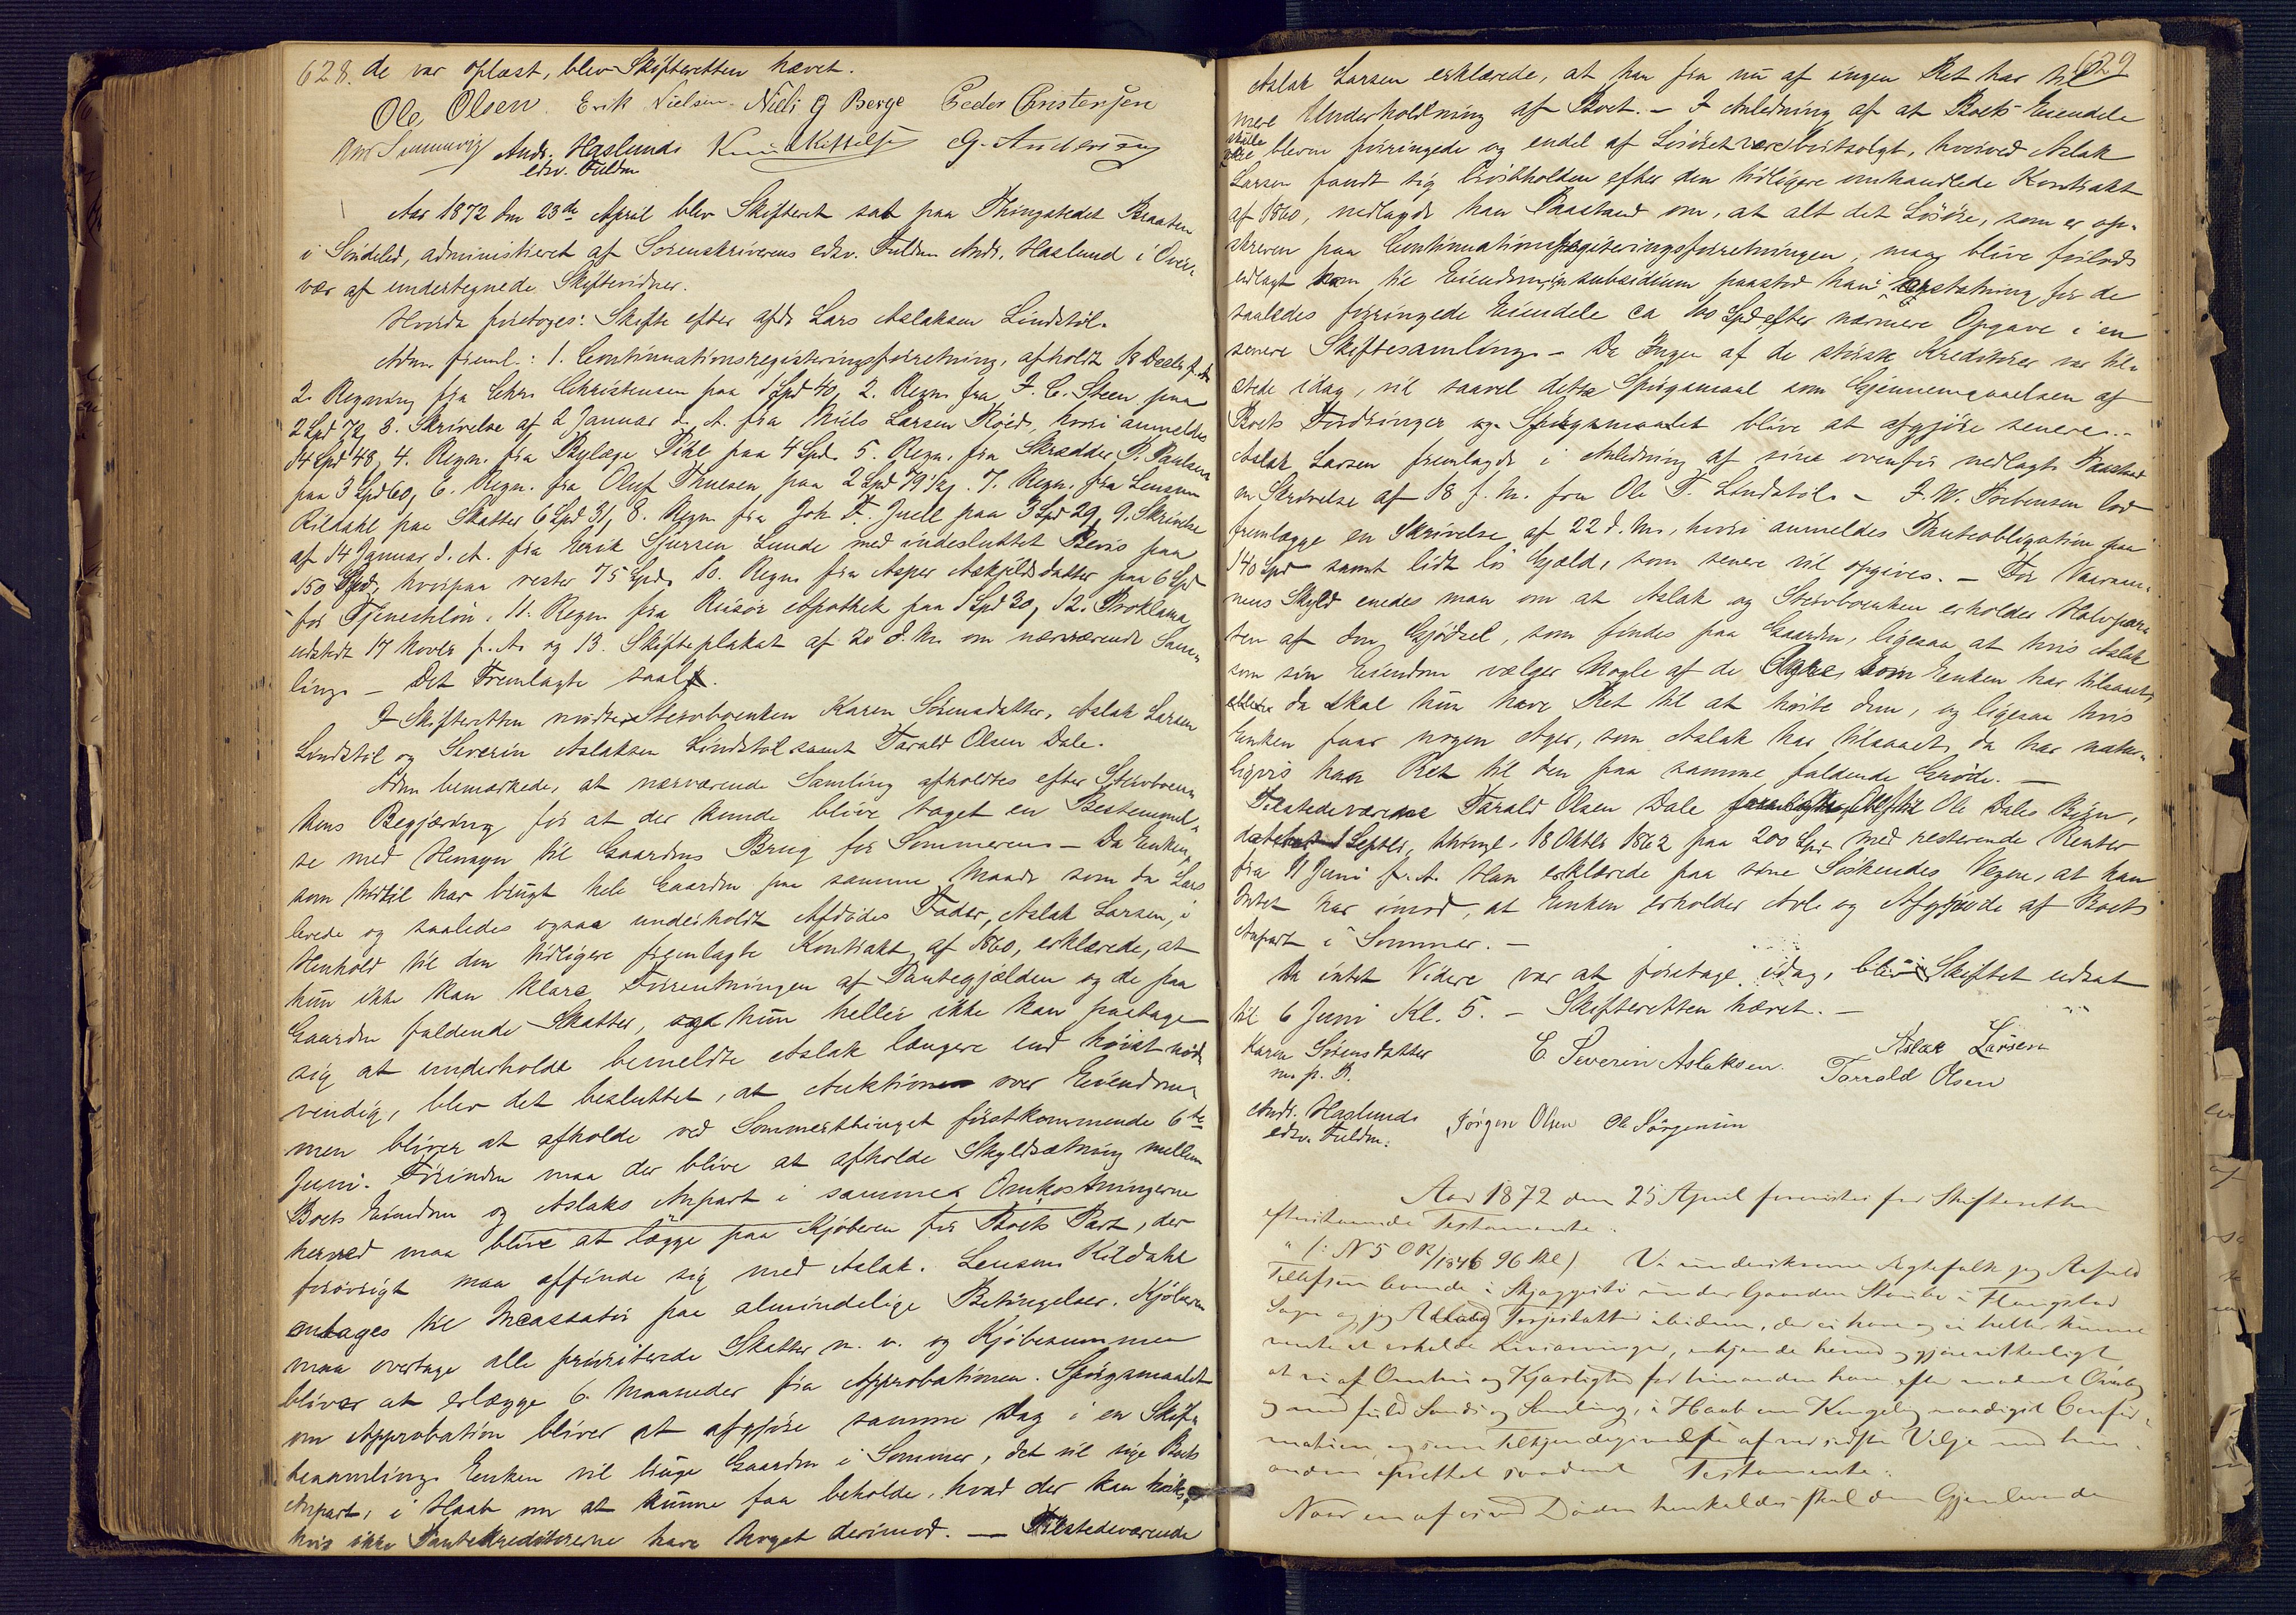 628. de var oplæst, blev Skifteretten hævet.
Ole Olsen. Erik Nielsen. Niels G Berge Peder Christensen
Andr. Haslund Knud Kittelsen G. Andersen
edsv. Fuldm
Aar 1872 den 23de April blev Skifteret sat paa Thingstedet Braaten
i Söndeled, administreret af Sorenskriverens edsv. Fuldm. Andr. Haslund i Over-
vær af undertegnede Skiftevidner.
Hvorda foretoges: Skifte efter afdö Lars Aslaksen Lindstöl.
Adm. freml.: 1. Continuationsregistreringsforretning, afholdt 18 Decbr f. A.
2. Regning fra Chr. Christensen paa 1 Spd 40, 2. Regn. fra J. C. Steen paa
2 Spd 72, 3. Skrivelse af 2 Januar d. A. fra Niels Larsen Röed, hvori anmeldes
14 Spd 48, 4. Regn. fra Dyrlæge Pihl paa 4 Spd. 5. Regn. fra Skrædder P. Paulsen
paa 3 Spd 60, 6. Regn. fra Oluf Thuesen paa 2 Spd 79 1/2, 7. Regn. fra Lensm.
Kildahl paa Skatter 6 Spd 31, 8. Regn fra Joh. F. Juell paa 3 Spd 29, 9. Skrivelse
af 14 Januar d. A. fra Erik Sjursen Lunde med indesluttet Bevis paa
150 Spd, hvorpaa rester 75 Spd, 10. Regn. fra Asper Askjildsdatter paa 6 Spd
for Tjenestelön, 11. Regn fra Risör Apothek paa 1 Spd 30, 12. Proklama,
udstedt 17 Novbr f. A. og 13. Skifteplakat af 20 d. M. om nærværende Sam-
ling. – Det Fremlagte saal.
I Skifteretten mødte Stervboenken Karen Sörensdatter, Aslak Larsen
Lindstöl og Severin Aslaksen Lindstöl samt Tarald Olsen Dale.
Adm bemærkede, at nærværende Samling afholdtes efter Stervboen-
kens Begjæring for at der kunde blive taget en Bestemmel-
se med Hensyn til Gaardens Brug for Sommeren. – Da Enken,
som hidtil har brugt hele Gaarden paa samme Maade som da Lars
levede og saaledes ogsaa underholdt Afdödes Fader, Aslak Larsen, i
Henhold til den tidligere fremlagte Kontrakt af 1860, erklærede, at
hun ikke kan klare Forrentningen af Pantegjælden og de paa
Gaarden faldende Skatter, og hun heller ikke kan paatage
sig at underholde bemeldte Aslak længere end höist nöd-
vendig, blev det besluttet, at Auktion over Eiendom-
men bliver at afholde ved Sommerthinget förstkommende 6te
Juni. Förinden maa der blive at afholde Skyldsætning mellem
Boets Eiendom og Aslaks Anpart i samme. Omkostningerne
herved maa blive at lægge paa Kjøberen for Boets Part, der
forövrigt maa affinde sig med Aslak. Lensm. Kildahl
antages til Incassator paa almindelige Betingelser. Kjøberen
maa overtage alle prioriterede Skatter m. v. og Kjøbesummen
bliver at erlægge 6 Maaneder fra Approbationen. Spörgsmaalet
om Approbation bliver at afgjöre samme Dag i en Skif-
tesamling. Enken vil bruge Gaarden i Sommer, det vil sige Boets
Anpart, i Haab om at kunne faa beholde, hvad der kan höstes,
hvis ikke Pantekreditorerne have Noget derimod. — Tilstedeværende
629
Aslak Larsen erklærede, at han fra nu af ingen Ret har til
mere Underholdning af Boet. – I Anledning af at Boets Eiendele
skulle blevne forringede og endel af Lösöret være bortsolgt, hvorved Aslak
Larsen fandt sig brösthölden efter den tidligere omhandlede Kontrakt
af 1860, nedlagde han Paastand om, at alt det Lösöre, som er op-
skreven paa Continuationsregistreringsforretningen, maa blive
udlagt ham til Eiendom, in subsidium paastod han Erstatning for de
saaledes forringede Eiendele ca 100 Spd efter nærmere Opgave i en
senere Skiftesamling. – Da Ingen af de störste Kreditorer var til-
stede idag, vil saavel dette Spörgsmaal som Gjennemgaaelsen af
Boets Fordringer og Spörgsmaalet blive at afgjöre senere. –
Aslak Larsen fremlagde i Anledning af sine ovenfor nedlagte Paastand
en Skrivelse af 18 f. M. fra Ole T. Lindstöl. – J. W. Torbensen lod
fremlægge en Skrivelse af 22 d. M., hvori anmeldes Panteobligation paa
140 Spd samt lidt lös Gjæld, som senere vil opgives. – For Vaaraan-
nens Skyld enedes man om at Aslak og Stervboenken erholder Halvpar-
ten af den Gjödsel, som findes paa Gaarden, ligesaa at hvis Aslak
som sin Eiendom vælger Nogle af de Agre, som Enken har tilsaaet,
da skal hun have Ret til at höste dem, og ligesaa hvis
Enken faar nogen Ager, som Aslak har tilsaaet, da har natur-
ligvis han Ret til den paa samme faldende Gröde. —
Tilstedeværende Tarald Olsen Dale til Ole Dales Börn,
dateret 1 Septbr, thingl. 18 Oktbr 1862 paa 200 Spd med resterende Renter
fra 11 Juni f. A. Han erklærede paa sine Söskendes Vegne, at han
Intet har imod, at Enken erholder Avle og Afgröde af Boets
Anpart i Sommer. –
Da intet Videre var at foretage idag, blev Skiftet udsat
til 6 Juni Kl. 5. – Skifteretten hævet. –
Karen Sörensdatter C. Severin Aslaksen. Aslak Larsen
m. p. P. Tarrald Olsen
Andr. Haslund Jörgen Olsen Ole Jörgensen
edsv. Fuldm.
Aar 1872 den 25 April foreviistes for Skifteretten
efterstaaende Testamente:
" (: N 5 OR/1846 96 Skl) Vi underskrevne Ægtefolk jeg
Tellefsen boende i Skjeggesti under Gaarden i Flangstad
Sogn og jeg Terjesdatter ibidem, der ei have og ei heller kunne
vente at erholde Livsarvinger, erkjende herved og gjøre vitterligt
at vi af Omhu og Kjærlighed for hinanden have efter modent Overlæg
og med fuld Sands og Samling, i Haab om Kongelig naadigst Confir-
mation, og som Tilkjendegivelse af vor sidste Vilje med hin-
anden oprettet saadant Testamente:
Naar en af os ved Döden henkaldes skal den Gjenlevende